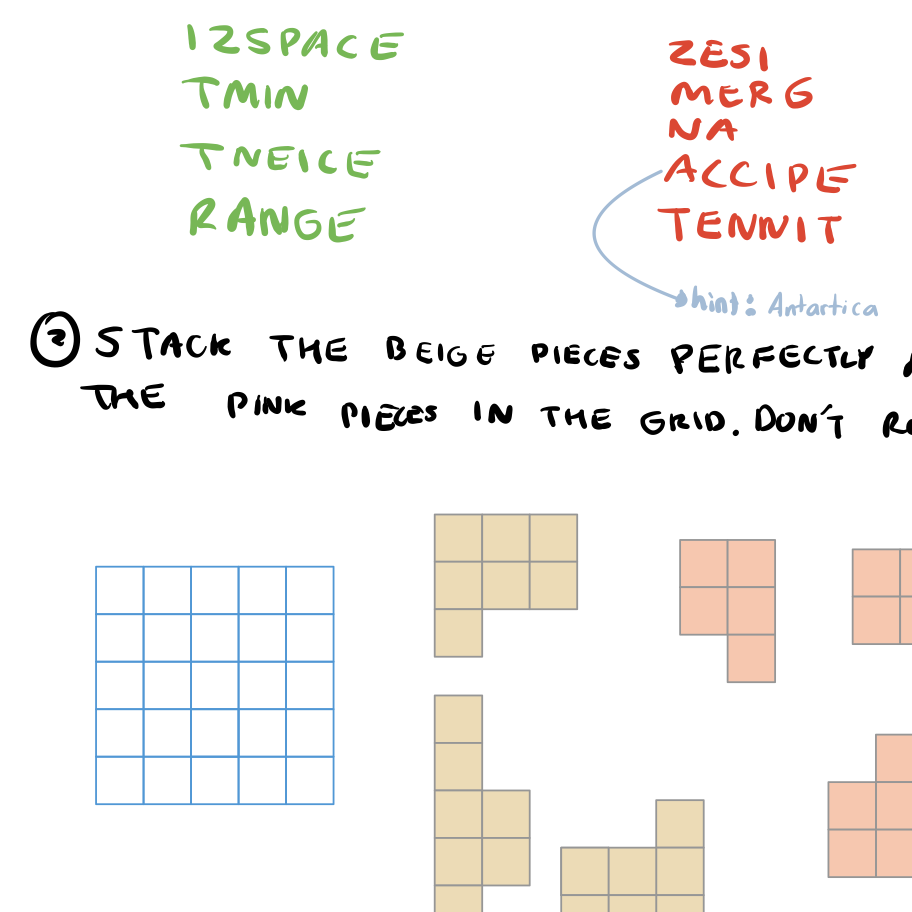 12SPACE
TMIN
TNEICE
RANGE
ZESI
MERG
NA
ACCIPE
TENNIT
hint: Antartica
2 STACK THE BEIGE PIECES PERFECTLY
THE PINK PIECES IN THE GRID. DON'T